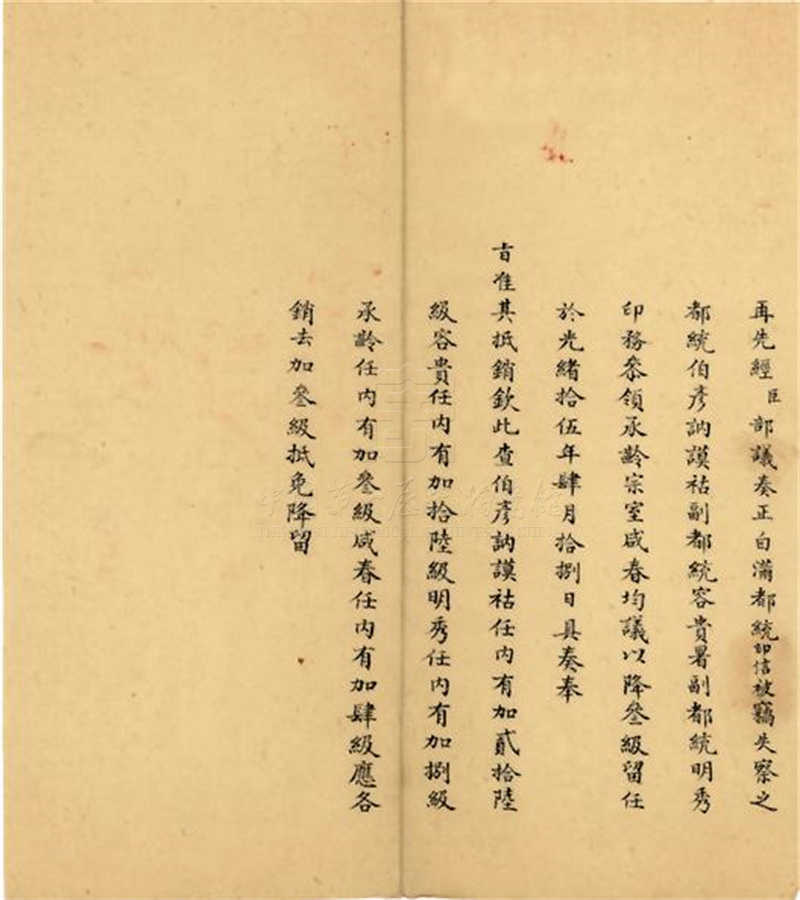 再先經臣部議奏正白滿都統印信被竊失察之
都統伯彥訥謨祜副都統容貴署副都統明秀
印務叅領承齡宗室咸春均議以降叄級留任
於光緒拾伍年肆月拾捌日具奏奉
旨准其抵銷欽此查伯彥訥謨祜任內有加貳拾陸
級容貴任內有加拾陸級明秀任內有加捌級
承齡任內有加叄級咸春任內有加肆級應各
銷去加叄級抵免降留